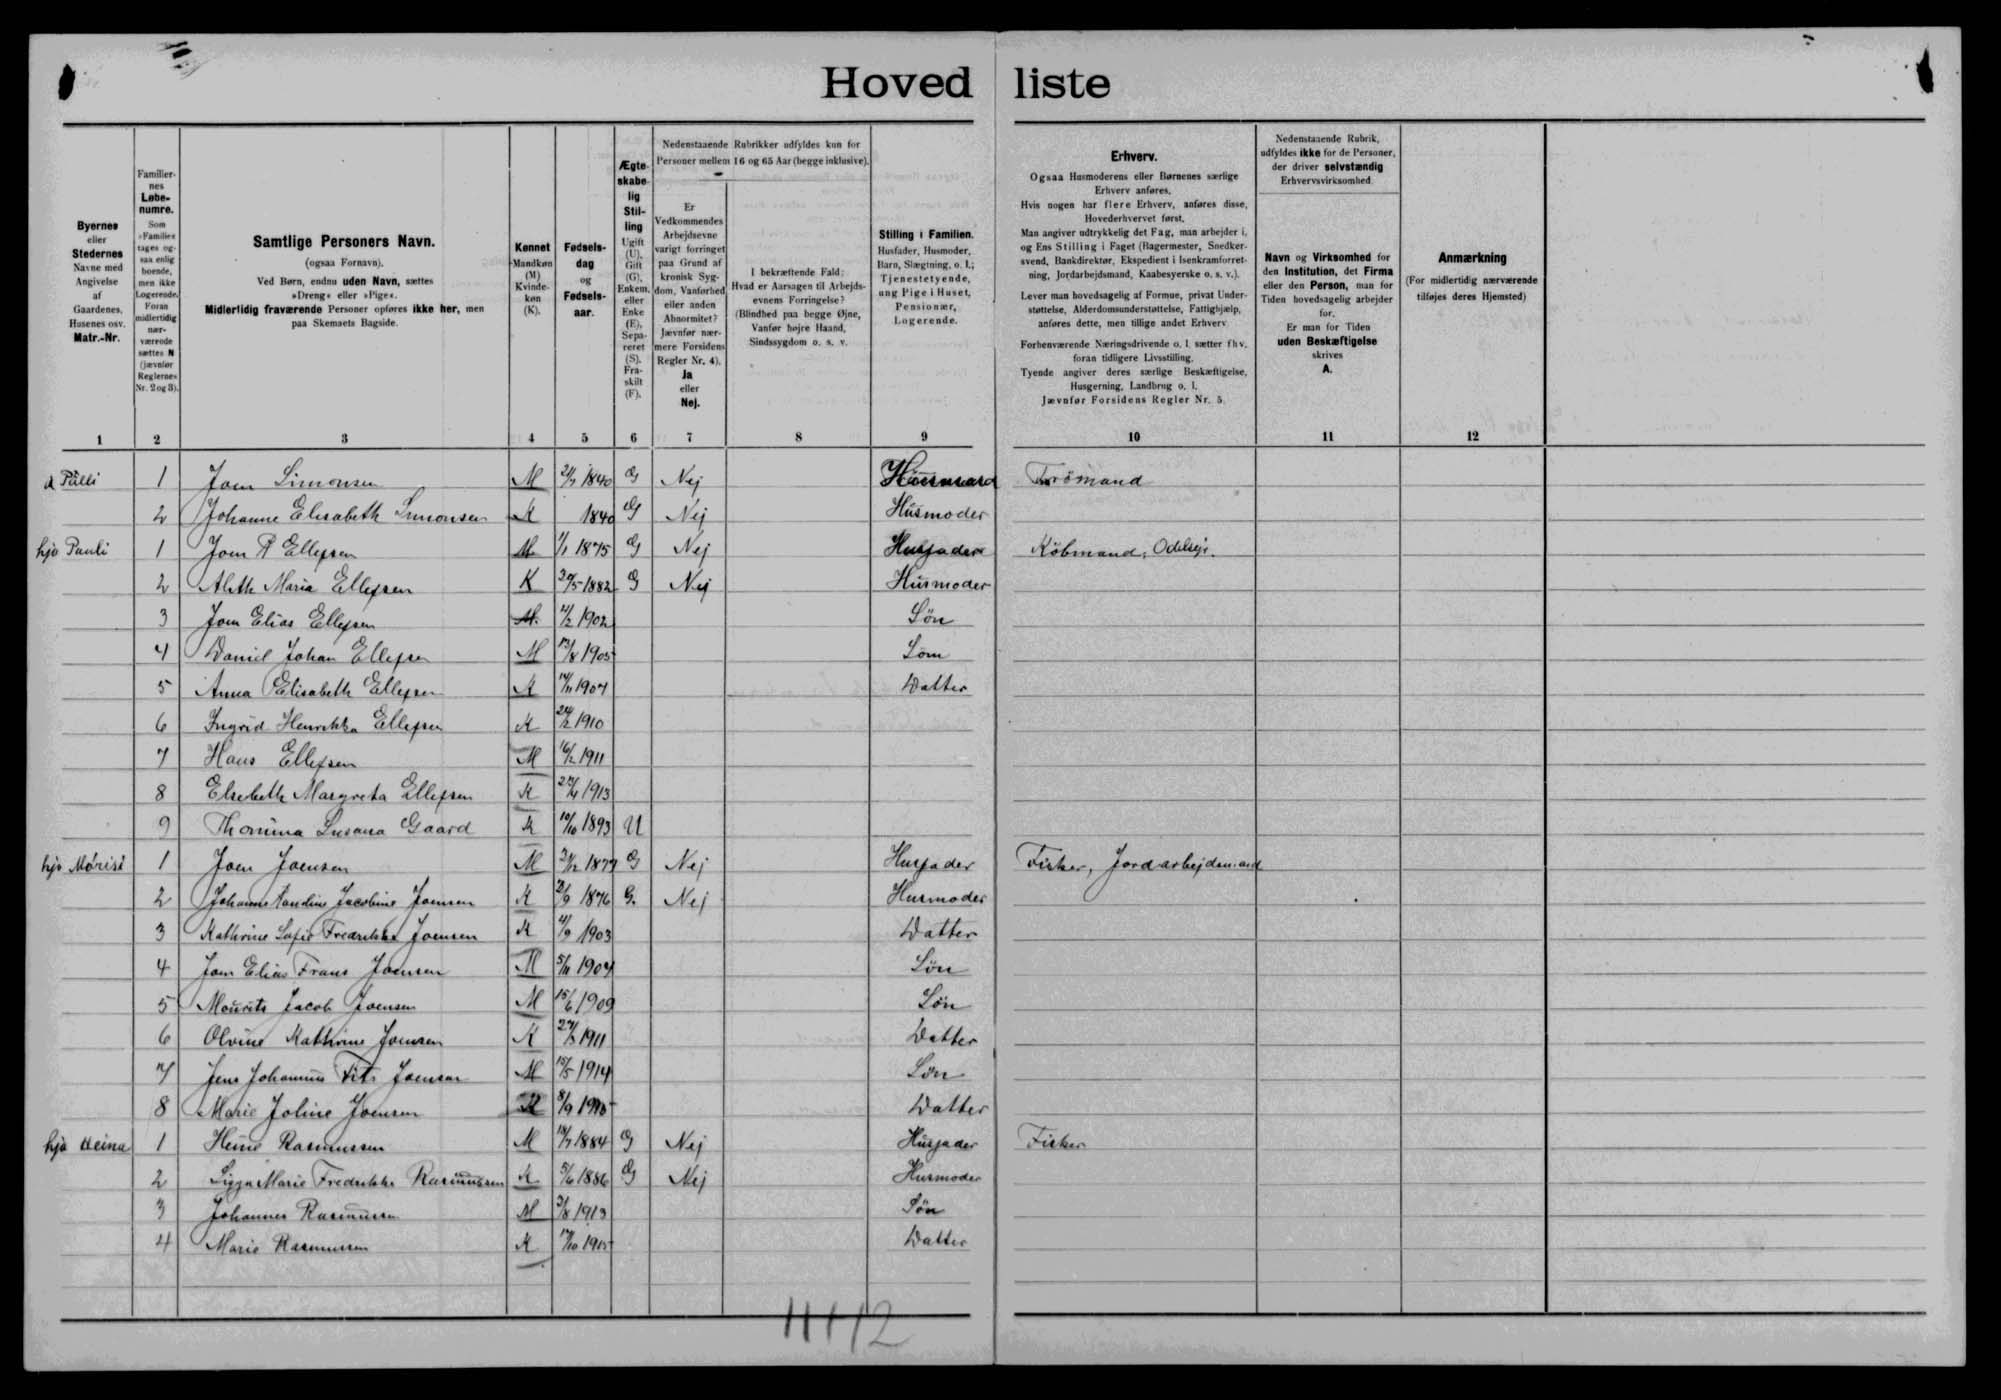 Hovedliste
Byernes
eller
Stedernes
Navne med
Angivelse
af
Gaardenes,
Husenes osv.
Matr.-Nr.
Familier-
nes
Løbe-
numre.
Som
»Familie«
tages og-
saa enlig
boende,
men ikke
Logerende.
Foran
midlertidig
nær-
værende
sættes N
(jævnfør
Reglernes
Nr. 2 og 3).
Samtlige Personers Navn.
(ogsaa Fornavn).
Ved Børn, endnu uden Navn, sættes
»Dreng« eller »Pige«.
Midlertidig fraværende Personer opføres ikke her, men
paa Skemaets Bagside.
Kønnet
Mandkøn
(M)
Kvinde-
køn
(K).
Fødsels-
dag
og
Fødsels-
aar.
Ægte-
skabe-
lig
Stil-
ling
Ugift
(U),
Gift
(G),
Enkem.
eller
Enke
(E),
Sepa-
reret
(S),
Fra-
skilt
(F).
Nedenstaaende Rubrikker udfyldes kun for
Personer mellem 16 og 65 Aar (begge inklusive).
Er
Vedkommendes
Arbejdsevne
varigt forringet
paa Grund af
kronisk Syg-
dom, Vanførhed
eller anden
Abnormitet?
Jævnfør nær-
mere Forsidens
Regler Nr. 4).
Ja
eller
Nej.
I bekræftende Fald:
Hvad er Aarsagen til Arbejds-
evnens Forringelse?
(Blindhed paa begge Øjne,
Vanfør højre Haand,
Sindssygdom o. s. v.
Stilling i Familien.
Husfader, Husmoder,
Barn, Slægtning, o. l.;
Tjenestetyende,
ung Pige i Huset,
Pensionær,
Logerende.
Erhverv.
Ogsaa Husmoderens eller Børnenes særlige
Erhverv anføres.
Hvis nogen har flere Erhverv, anføres disse,
Hovederhvervet først.
Man angiver udtrykkelig det Fag, man arbejder i,
og Ens Stilling i Faget (Bagermester, Snedker-
svend, Bankdirektør, Ekspedient i Isenkramforret-
ning, Jordarbejdsmand, Kaabesyerske o. s. v.).
Lever man hovedsagelig af Formue, privat Under-
støttelse, Alderdomsunderstøttelse, Fattighjælp,
anføres dette, men tillige andet Erhverv
Forhenværende Næringsdrivende o. l. sætter fhv.
foran tidligere Livsstilling.
Tyende angiver deres særlige Beskæftigelse,
Husgerning, Landbrug o. l.
Jævnfør Forsidens Regler Nr. 5.
Nedenstaaende Rubrik,
udfyldes ikke for de Personer,
der driver selvstændig
Erhvervsvirksomhed
Navn og Virksomhed for
den Institution, det Firma
eller den Person, man for
Tiden hovedsagelig arbejder
for.
Er man for Tiden
uden Beskæftigelse
skrives
A.
Anmærkning
(For midlertidig nærværende
tilføjes deres Hjemsted)
1 2 3 4 5 6 7 8 9 10 11 12
1 Joen Simonsen M 1840 G Nej
2 Johanne Elisabeth Simonsen K 1840 G Nej Husmoder
hjo Pauli 1 Joen P Ellefsen M 1/1 1875 G Nej Husfader Købmand, Odelsejr.
2 Maria Ellefsen K 1882 G Nej Husmoder
3 Joen Elias Ellefsen M. 1902 Søn
4 Daniel Johan Ellefsen M 13/8 1905 Søn
5 Anna Elisabeth Ellefsen K 14/11 1907 Datter
6 Ingrid Henrikka Ellefsen K 1910
7 Hans Ellefsen M 16/2 1911
8 Elsebeth Margreta Ellefsen K 1913
9 Thomina Susana Gaard K 10/10 1893 U
hjo 1 Joen Joensen M 1877 G Nej Husfader Fisker, Jordarbejdsmand
2 Jacobine Joensen K 1876 G. Nej Husmoder
3 Kathrine Sofie Fredrikke Joensen K 4/9 1903 Datter
4 Joen Elias Frans Joensen M 5/11 1907 Søn
5 Mourits Jacob Joensen M 15/6 1909 Søn
6 Olvine Kathrine Joensen K 1911 Datter
7 Jens Johannus Joensen M 15/5 1914 Søn
8 Marie Joline Joensen K 8/9 Datter
hjo Heina 1 Heine Rasmussen M 1884 G Nej Husfader Fisker
2 Marie Fredrikke Rasmussen K 5/6 1886 G Nej Husmoder
3 Johannes Rasmussen M 1913 Søn
4 Marie Rasmussen K 1915 Datter